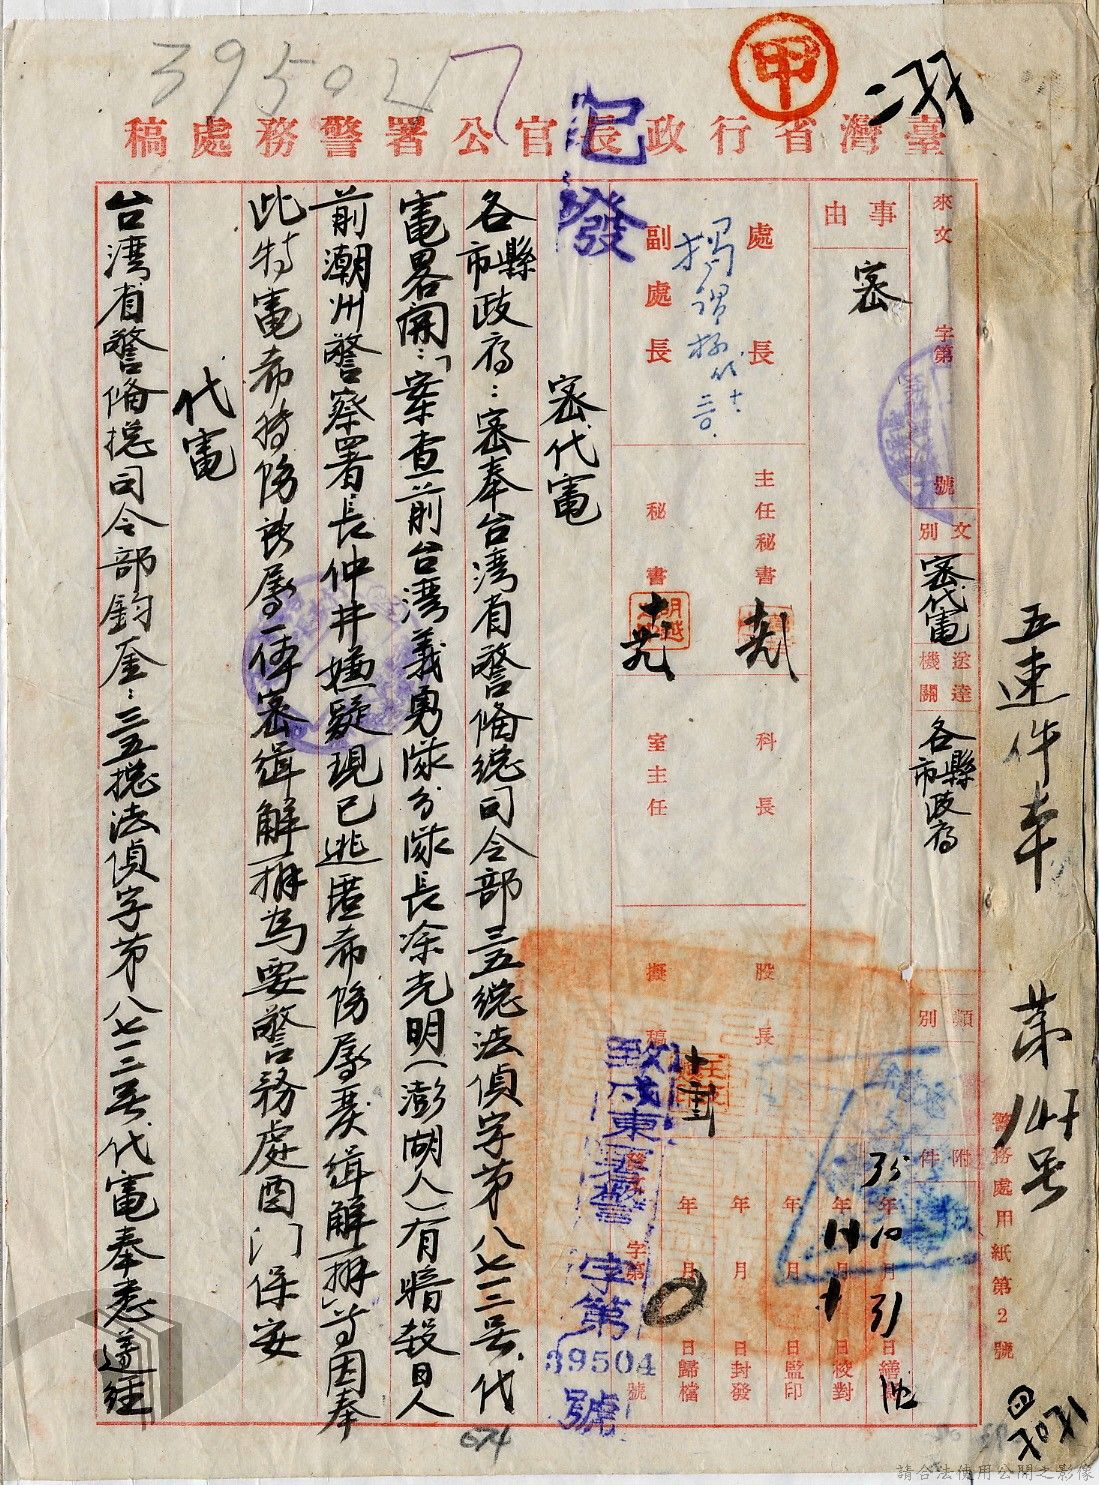 39504
甲
臺灣省行政長官公署警務處稿
已發
來文 字第 號
文別 密代電
送達機關 各縣市政府
類別
附件
事由
密
處長
副處長
主任秘書
秘書
科長
室主任
股長
擬稿
35年10月31日繕寫
年月日校對
年月日監印
年月日封發
年月日歸檔
致戌東署警 字第39504號
發文 字第 號
密代電
各縣市政府：密奉台灣省警備總司令部三五總法偵字第八七一二號代
電畧開：「案查前台灣義勇隊分隊長凃光明（澎湖人）有暗殺日人
前潮州警察署長仲井嫌疑現已逃匿希飭屬嚴緝解辦」等因奉
此特電希轉飭所屬一体密緝解辦為要警務處酉門保安
代電
台灣省警備總司令部鈞鑒：三五總法偵字第八七一二號代電奉悉遂經
五連件本
第 號
警務處用紙第2號
674
請合法使用公開之影像